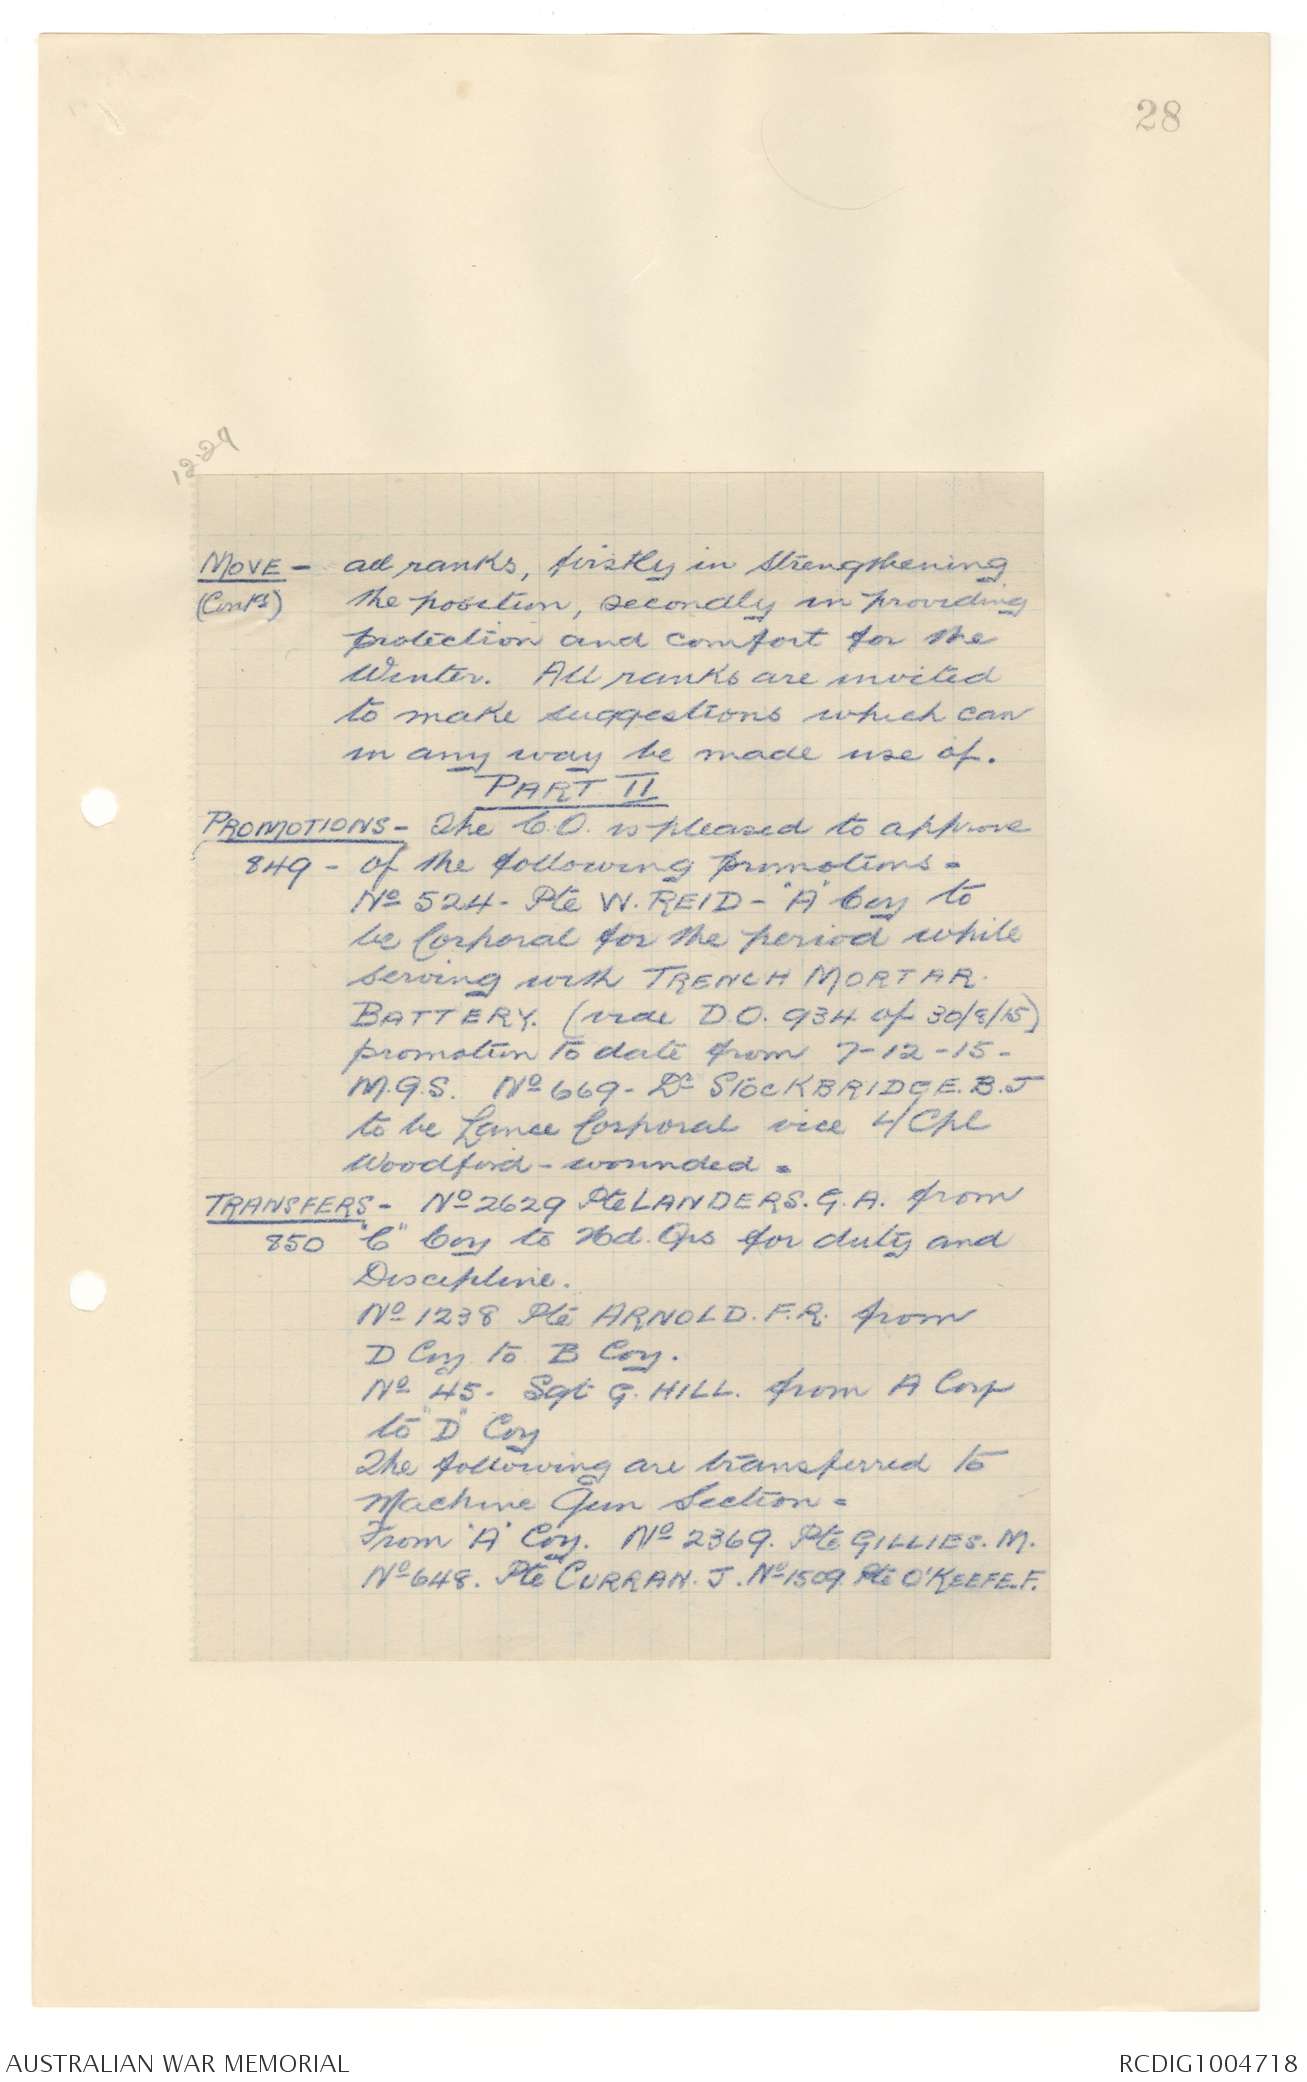 28
12.29
MOVE - all ranks, firstly in strengthening
(Cont'd) the position, secondly in providing
protection and comfort for the
Winter. All ranks are invited
to make suggestions which can
in any way be made use of.
PART II
PROMOTIONS - The C.O. is pleased to approve
849 - of the following promotions =
No 524 - Pte W. REID - "A" Coy to
be Corporal for the period while
serving with TRENCH MORTAR.
BATTERY. (vide D.O. 934 of 30/8/15)
promotion to date from 7-12-15 -
M.G.S. No 669 - Dr STOCKBRIDGE. B. J
to be Lance Corporal vice L/Cpl
Woodford - wounded =
TRANSFERS - No 2629 Pte LANDERS. G. A. from
850 "C" Coy to Hd. Qrs for duty and
Discipline.
No 1238 Pte ARNOLD. F. R. from
D Coy to B Coy.
No 45 - Sgt G. HILL. from A Corp
to "D" Coy
The following are transferred to
Machine Gun Section =
From "A" Coy. No 2369. Pte GILLIES. M.
No 648. Pte CURRAN. J. No 1509 Pte O'KEEFE. F.
AUSTRALIAN WAR MEMORIAL
RCDIG1004718